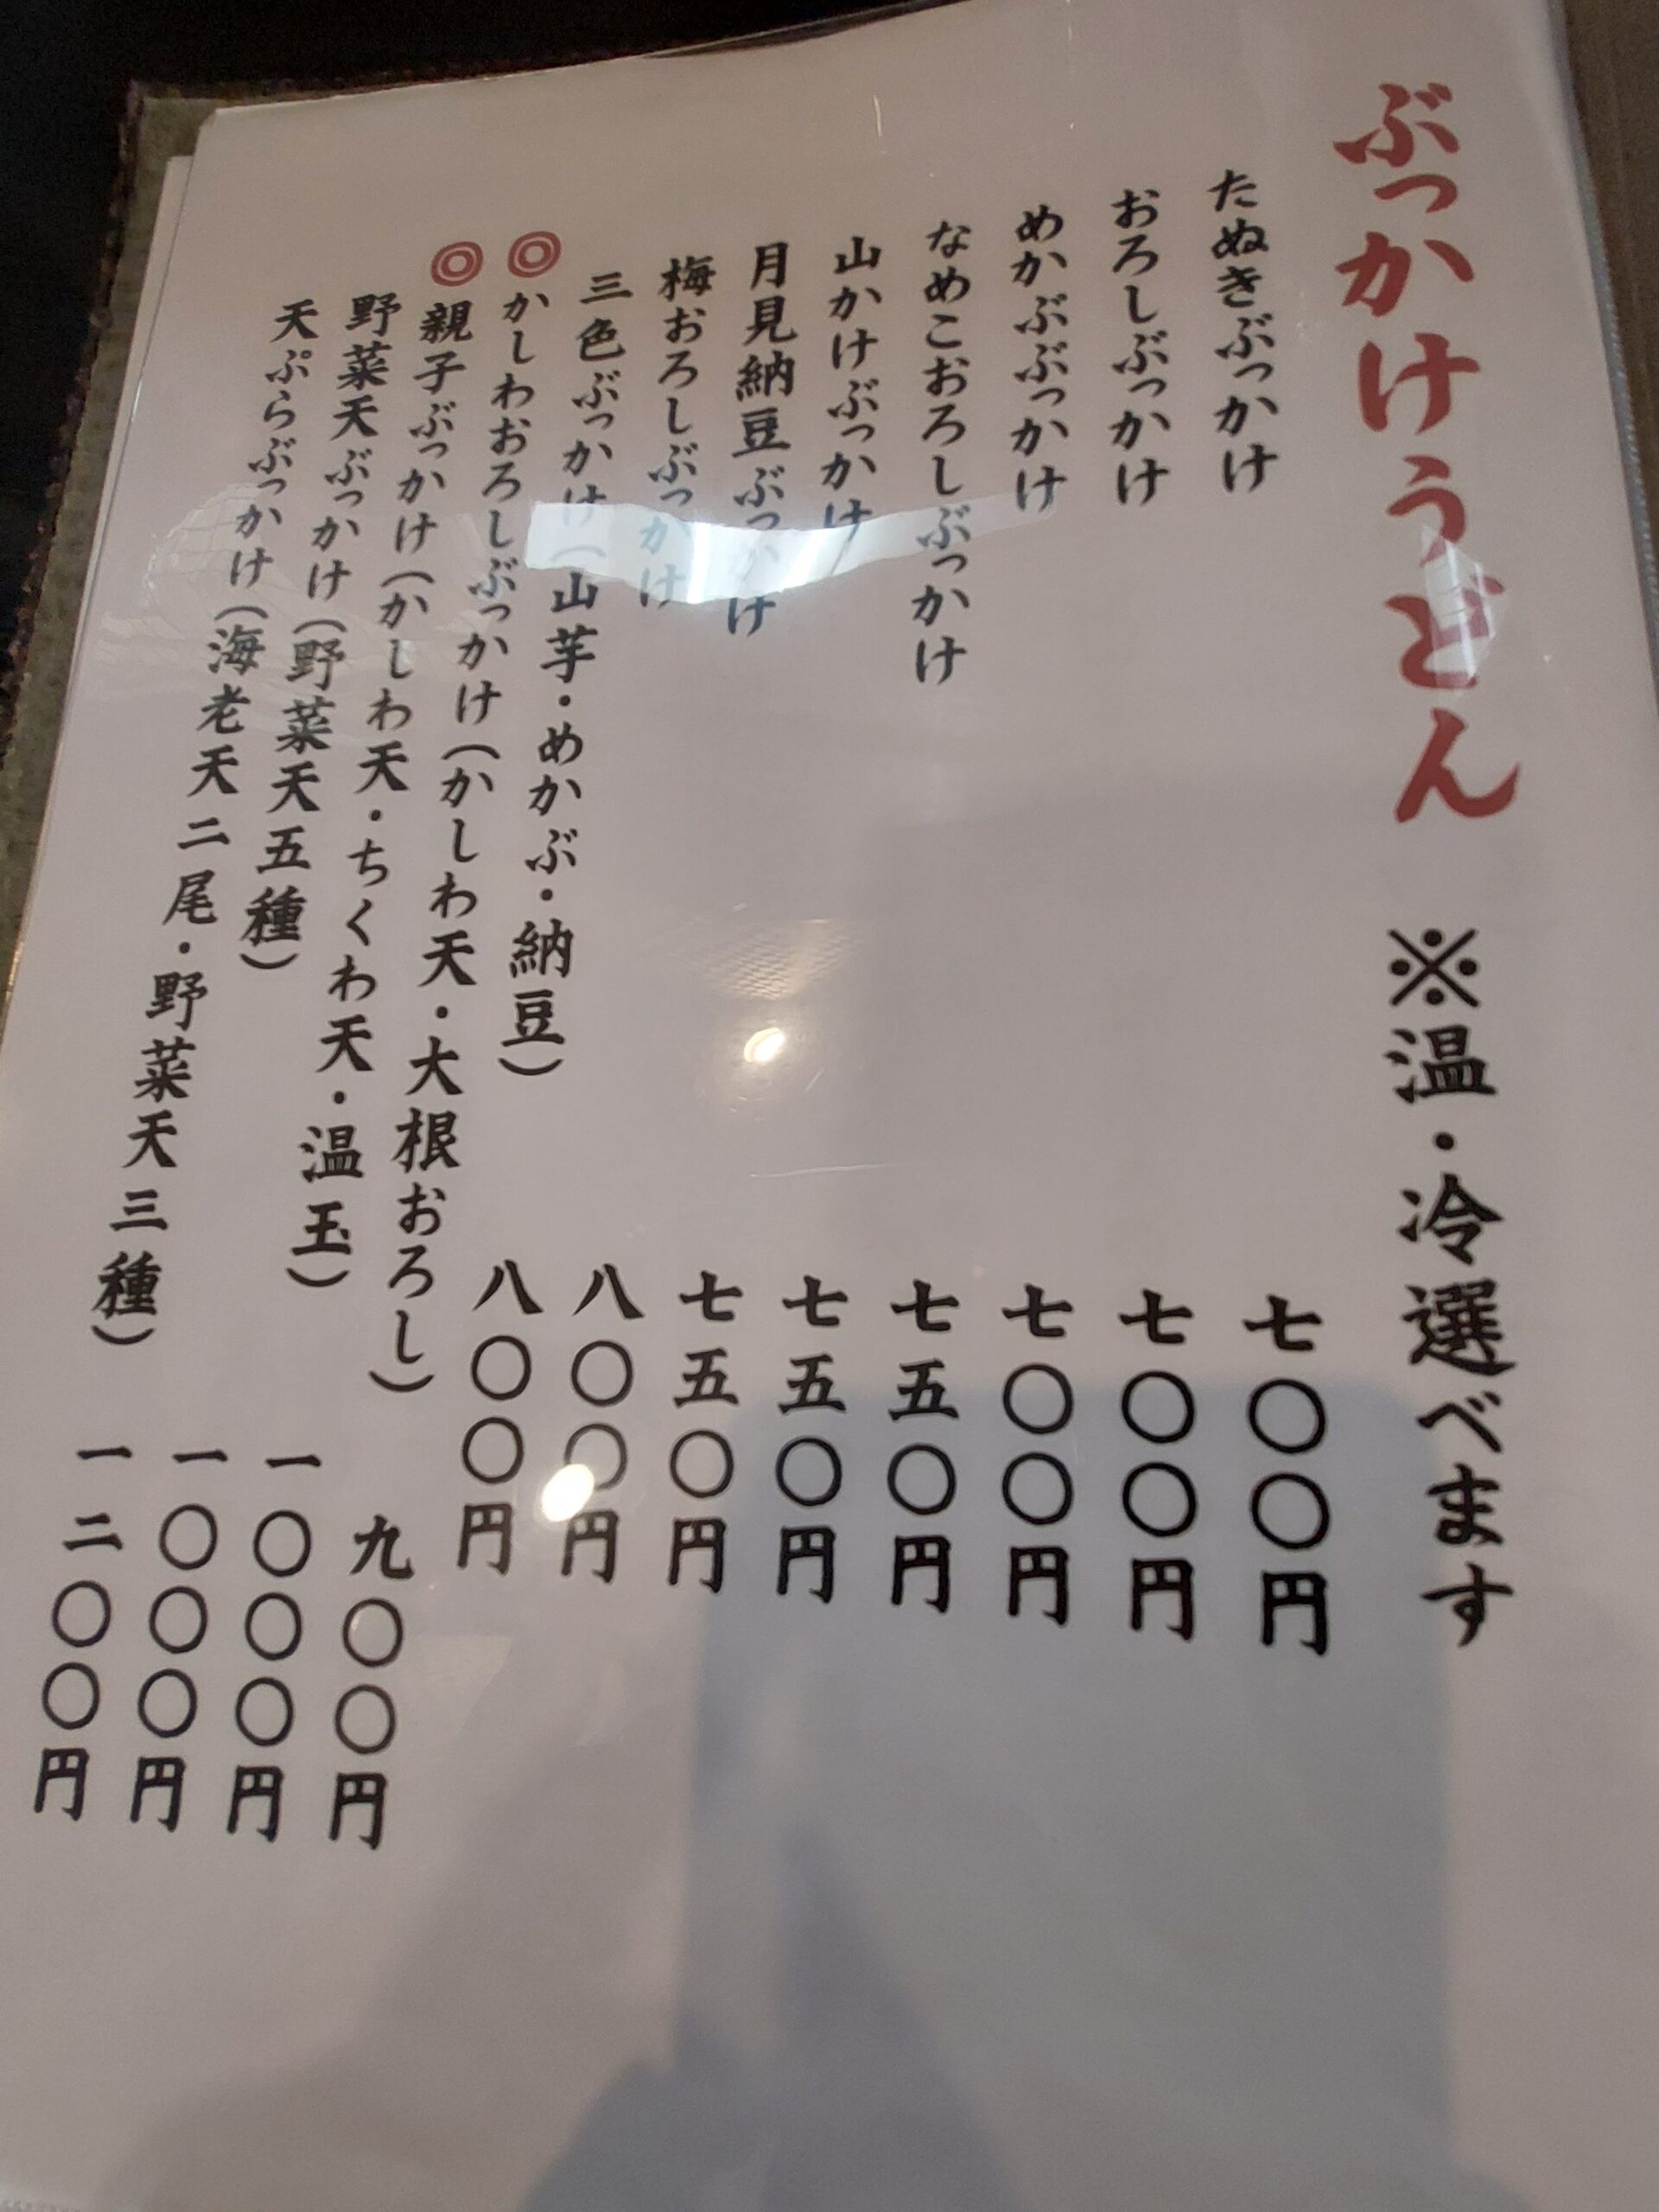 ぶっかけうどん ※温・冷選べます
たぬきぶっかけ 七〇〇円
おろしぶっかけ 七〇〇円
めかぶぶっかけ 七〇〇円
なめこおろしぶっかけ 七五〇円
山かけぶっかけ 七五〇円
月見納豆ぶっかけ 七五〇円
梅おろしぶっかけ 八〇〇円
三色ぶっかけ(山芋・めかぶ・納豆) 八〇〇円
◎かしわおろしぶっかけ(かしわ天・大根おろし) 九〇〇円
◎親子ぶっかけ(かしわ天・ちくわ天・温玉) 一〇〇〇円
野菜天ぶっかけ(野菜天五種) 一〇〇〇円
天ぷらぶっかけ(海老天二尾・野菜天三種) 一二〇〇円